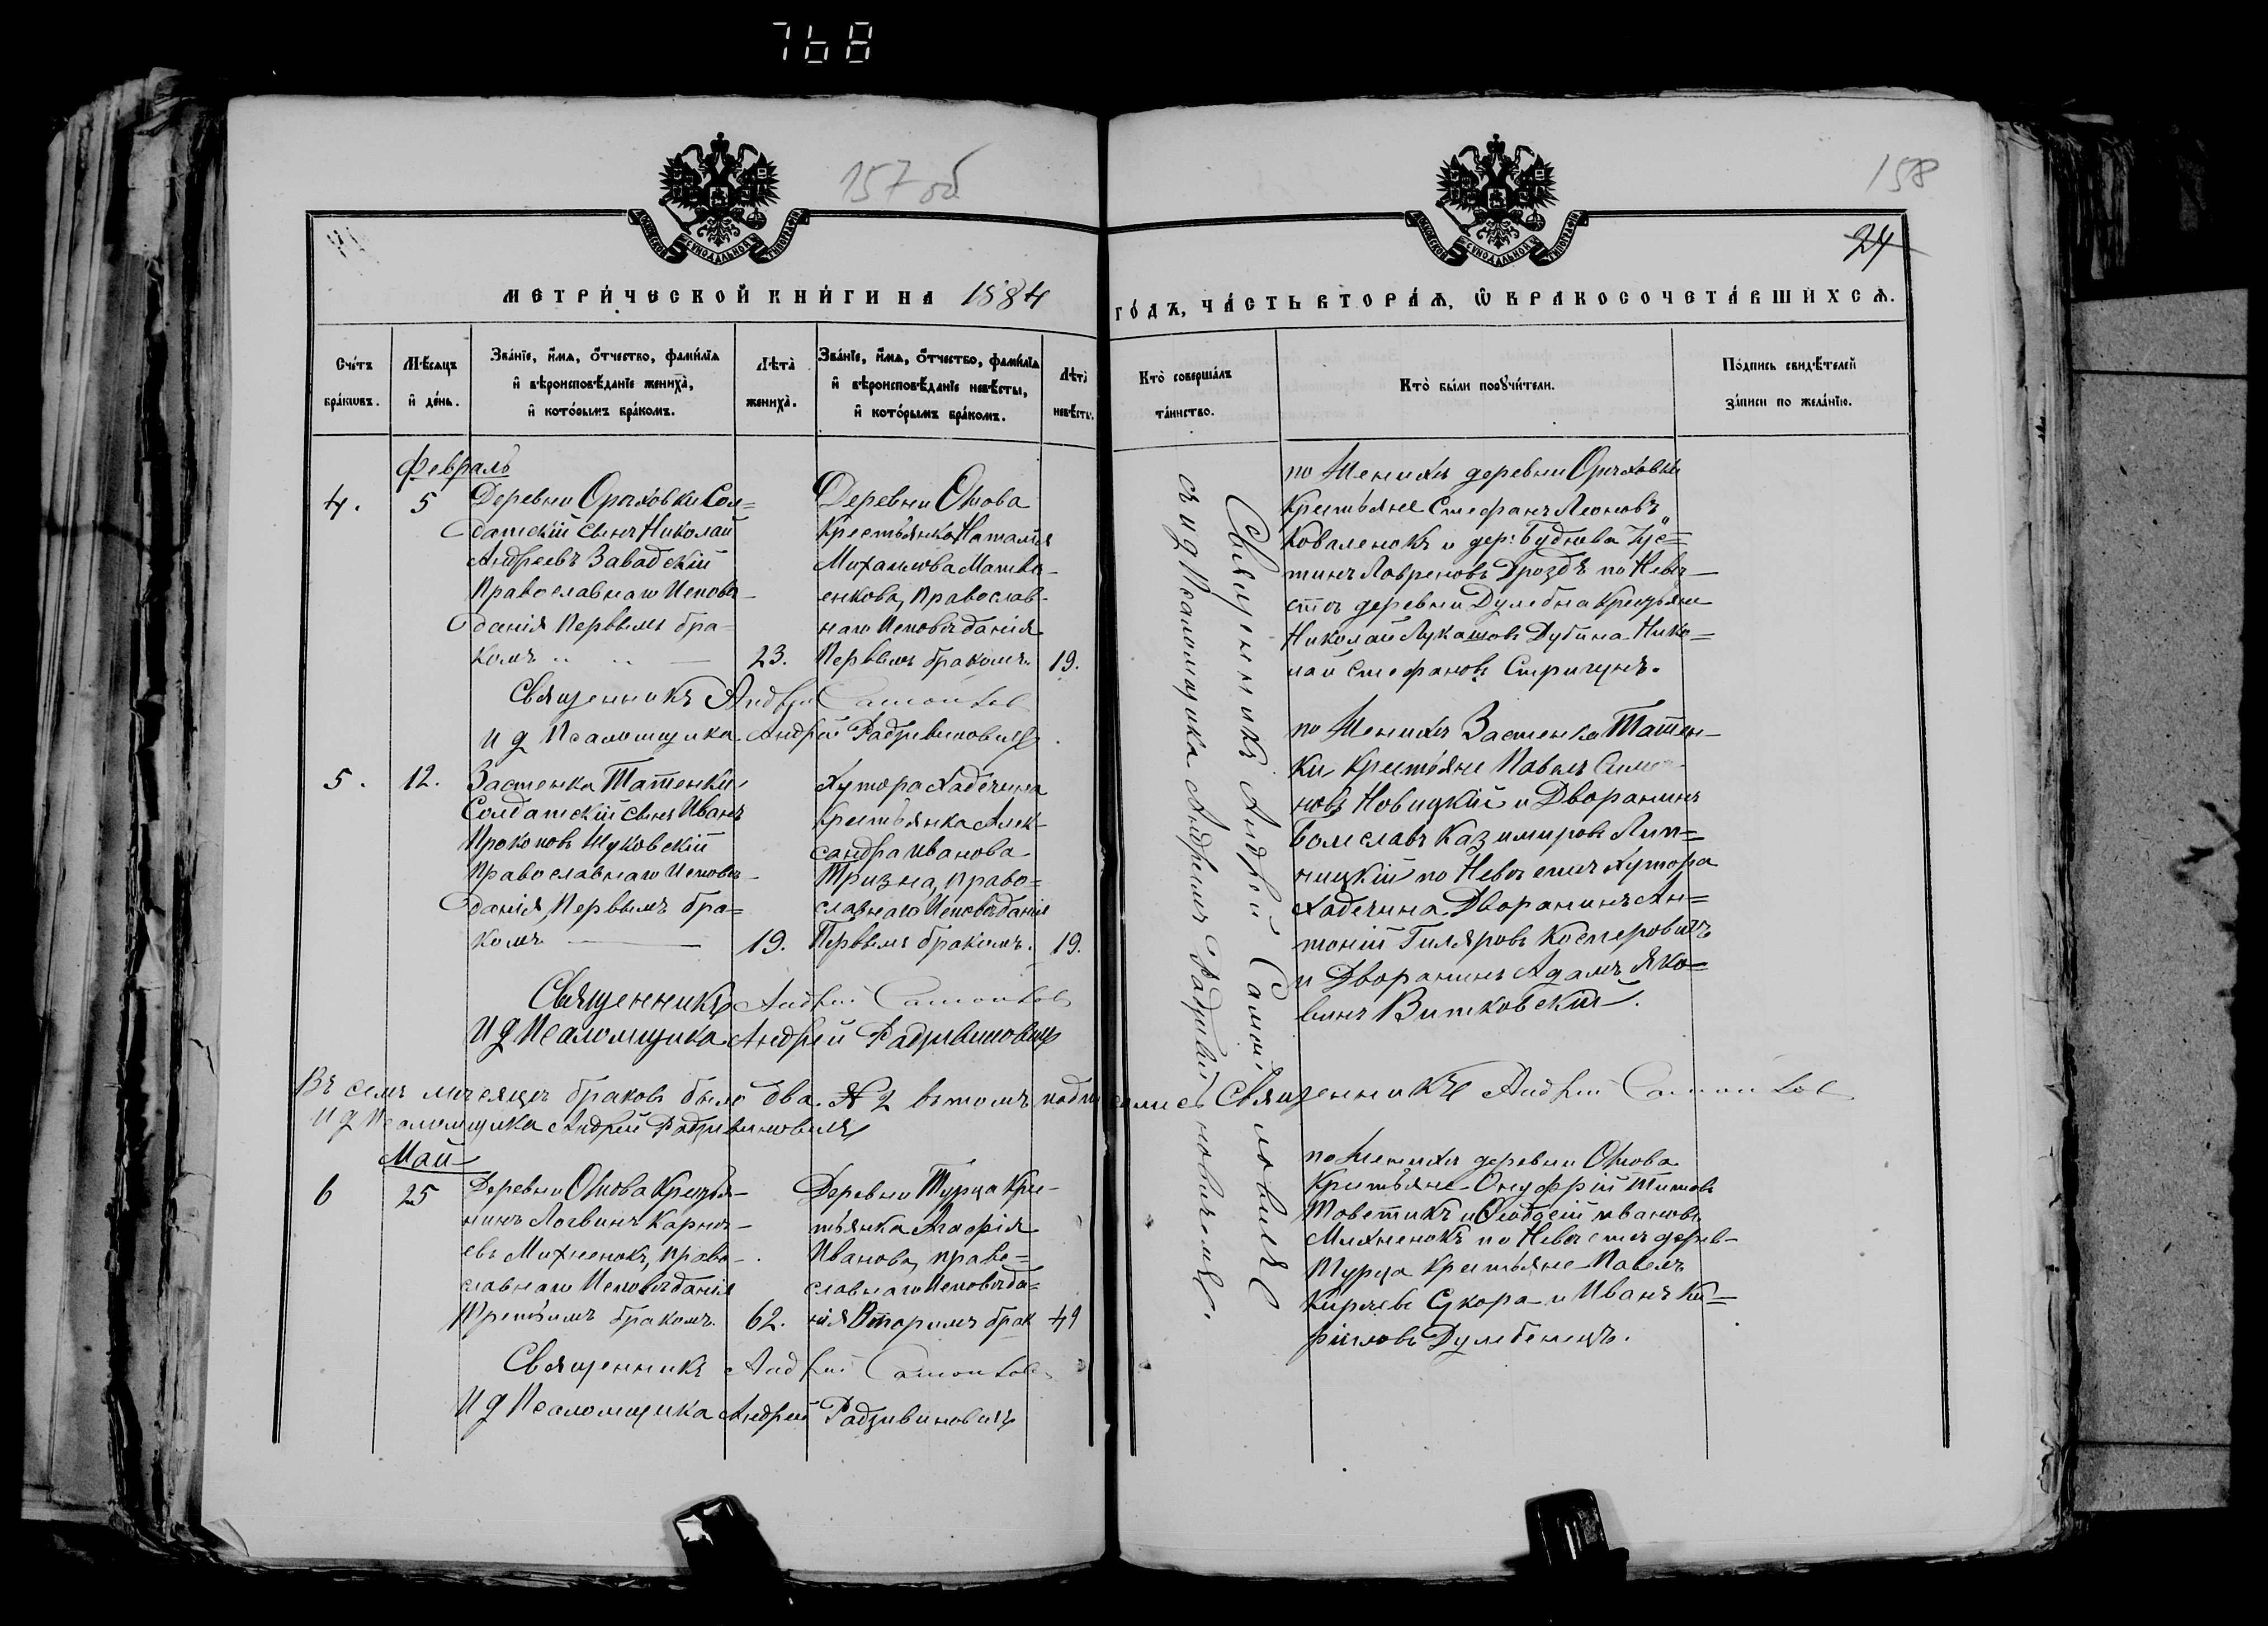 768
157 об
158
24
МОСКОВСКОЙ СУНОДАЛЬНОЙ ТИПОГРАФІИ
МОСКОВСКОЙ СУНОДАЛЬНОЙ ТИПОГРАФІИ
МЕТРИ́ЧЕСКОЙ КНИ́ГИ НА 1884
ГО́ДЪ, ЧА́СТЬ ВТОРА́Ѧ, Ѽ БРАКОСОЧЕТА́ВШИХСѦ.
Сче́тъ бра́кѡвъ.
Мѣ́сѧцъ и҆ де́нь.
Зва́нїе, и҆́мѧ, ѻ҆́тчество, фами́лїѧ и҆ вѣроисповѣ́данїе жениха̀, и҆ кото́рымъ бра́комъ.
Лѣта̀ жениха̀.
Зва́нїе, и҆́мѧ, ѻ҆́тчество, фами́лїѧ и҆ вѣроисповѣ́данїе невѣ́сты, и҆ кото́рымъ бра́комъ.
Лѣта̀ невѣ́сты.
Кто̀ соверша́лъ та́инство.
Кто̀ бы́ли порꙋчи́тели.
По́дпись свидѣ́телей за́писи по жела́нїю.
Февраль
4.
5
Деревни Орѣховки Сол=
датскій сынъ Николай
Андреевъ Завадскій
Православнаго Исповѣ-
данія Первымъ бра=
комъ
23.
Деревни Ожова
Крестьянка Наталія
Михаилова Матве-
енкова, Православ-
наго Исповѣданія
Первымъ бракомъ.
19.
по Женихѣ деревни Орѣховки
Крестьяне Стефанъ Леоновъ
Коваленокъ и дер: Буднева Іус=
тинъ Лавреновъ Дроздъ по Невѣ-
стѣ деревни Дулебна Крестьяне
Николай Лукашовъ Дубина Нико=
лай Стефановъ Стригунъ.
Священникъ Андрей Самойлов
И д Псаломщика Андрей Радзивиновичъ
5.
12.
Застенка Татенки
Солдатскій сынъ Иванъ
Прокоповъ Жуковскій
Православнаго Исповѣ-
данія, Первымъ бра=
комъ
19.
Хутора Хадечина
Крестьянка Алек-
сандра Иванова
Тризна, Право=
славнаго Исповѣданія
Первымъ бракомъ.
19.
по Женихѣ Застенка Татен-
ки Крестьяне Павелъ Симо
новъ Новицкій и Дворанинъ
Болеславъ Казимировъ Лип=
ницкій по Невѣстѣ Хутора
Хадечина Дворанинъ Ан=
тоній Гиляровъ Косперовичъ
и Дворанинъ Адамъ Яко=
винъ Витковскій.
Священникъ Андрей Самойлов
И д Псаломщика Андрей Радзивиновичъ
Въ семъ месяцѣ браковъ было два. № 2 въ томъ подписались Священникъ Андрей Самойлов
И д Псаломщика Андрей Радзивиновичъ
Священникъ Андрей Самойловичъ
съ и д Псаломщика Андреемъ Радзивиновичемъ.
Май
6
25
Деревни Ожова Крестья-
нинъ Логвинъ Карнѣ-
евъ Михненокъ, Право-
славнаго Исповѣданія
Третьимъ бракомъ.
62.
Деревни Турца Кре-
стьянка Агафія
Иванова, Право=
славнаго Исповѣда=
нія Вторимъ брак
49
по Женихѣ деревни Ожова
Крестьяне Онуфрій Титовъ
Товстикъ и Ивановъ
Михненокъ по Невѣстѣ дерев-
Турца Крестьяне Павелъ
Кирѣевъ Сукора и Иванъ Ки=
риловъ Дулебенецъ.
Священникъ Андрей Самойлов
И д Псаломщика Андрей Радзивиновичъ